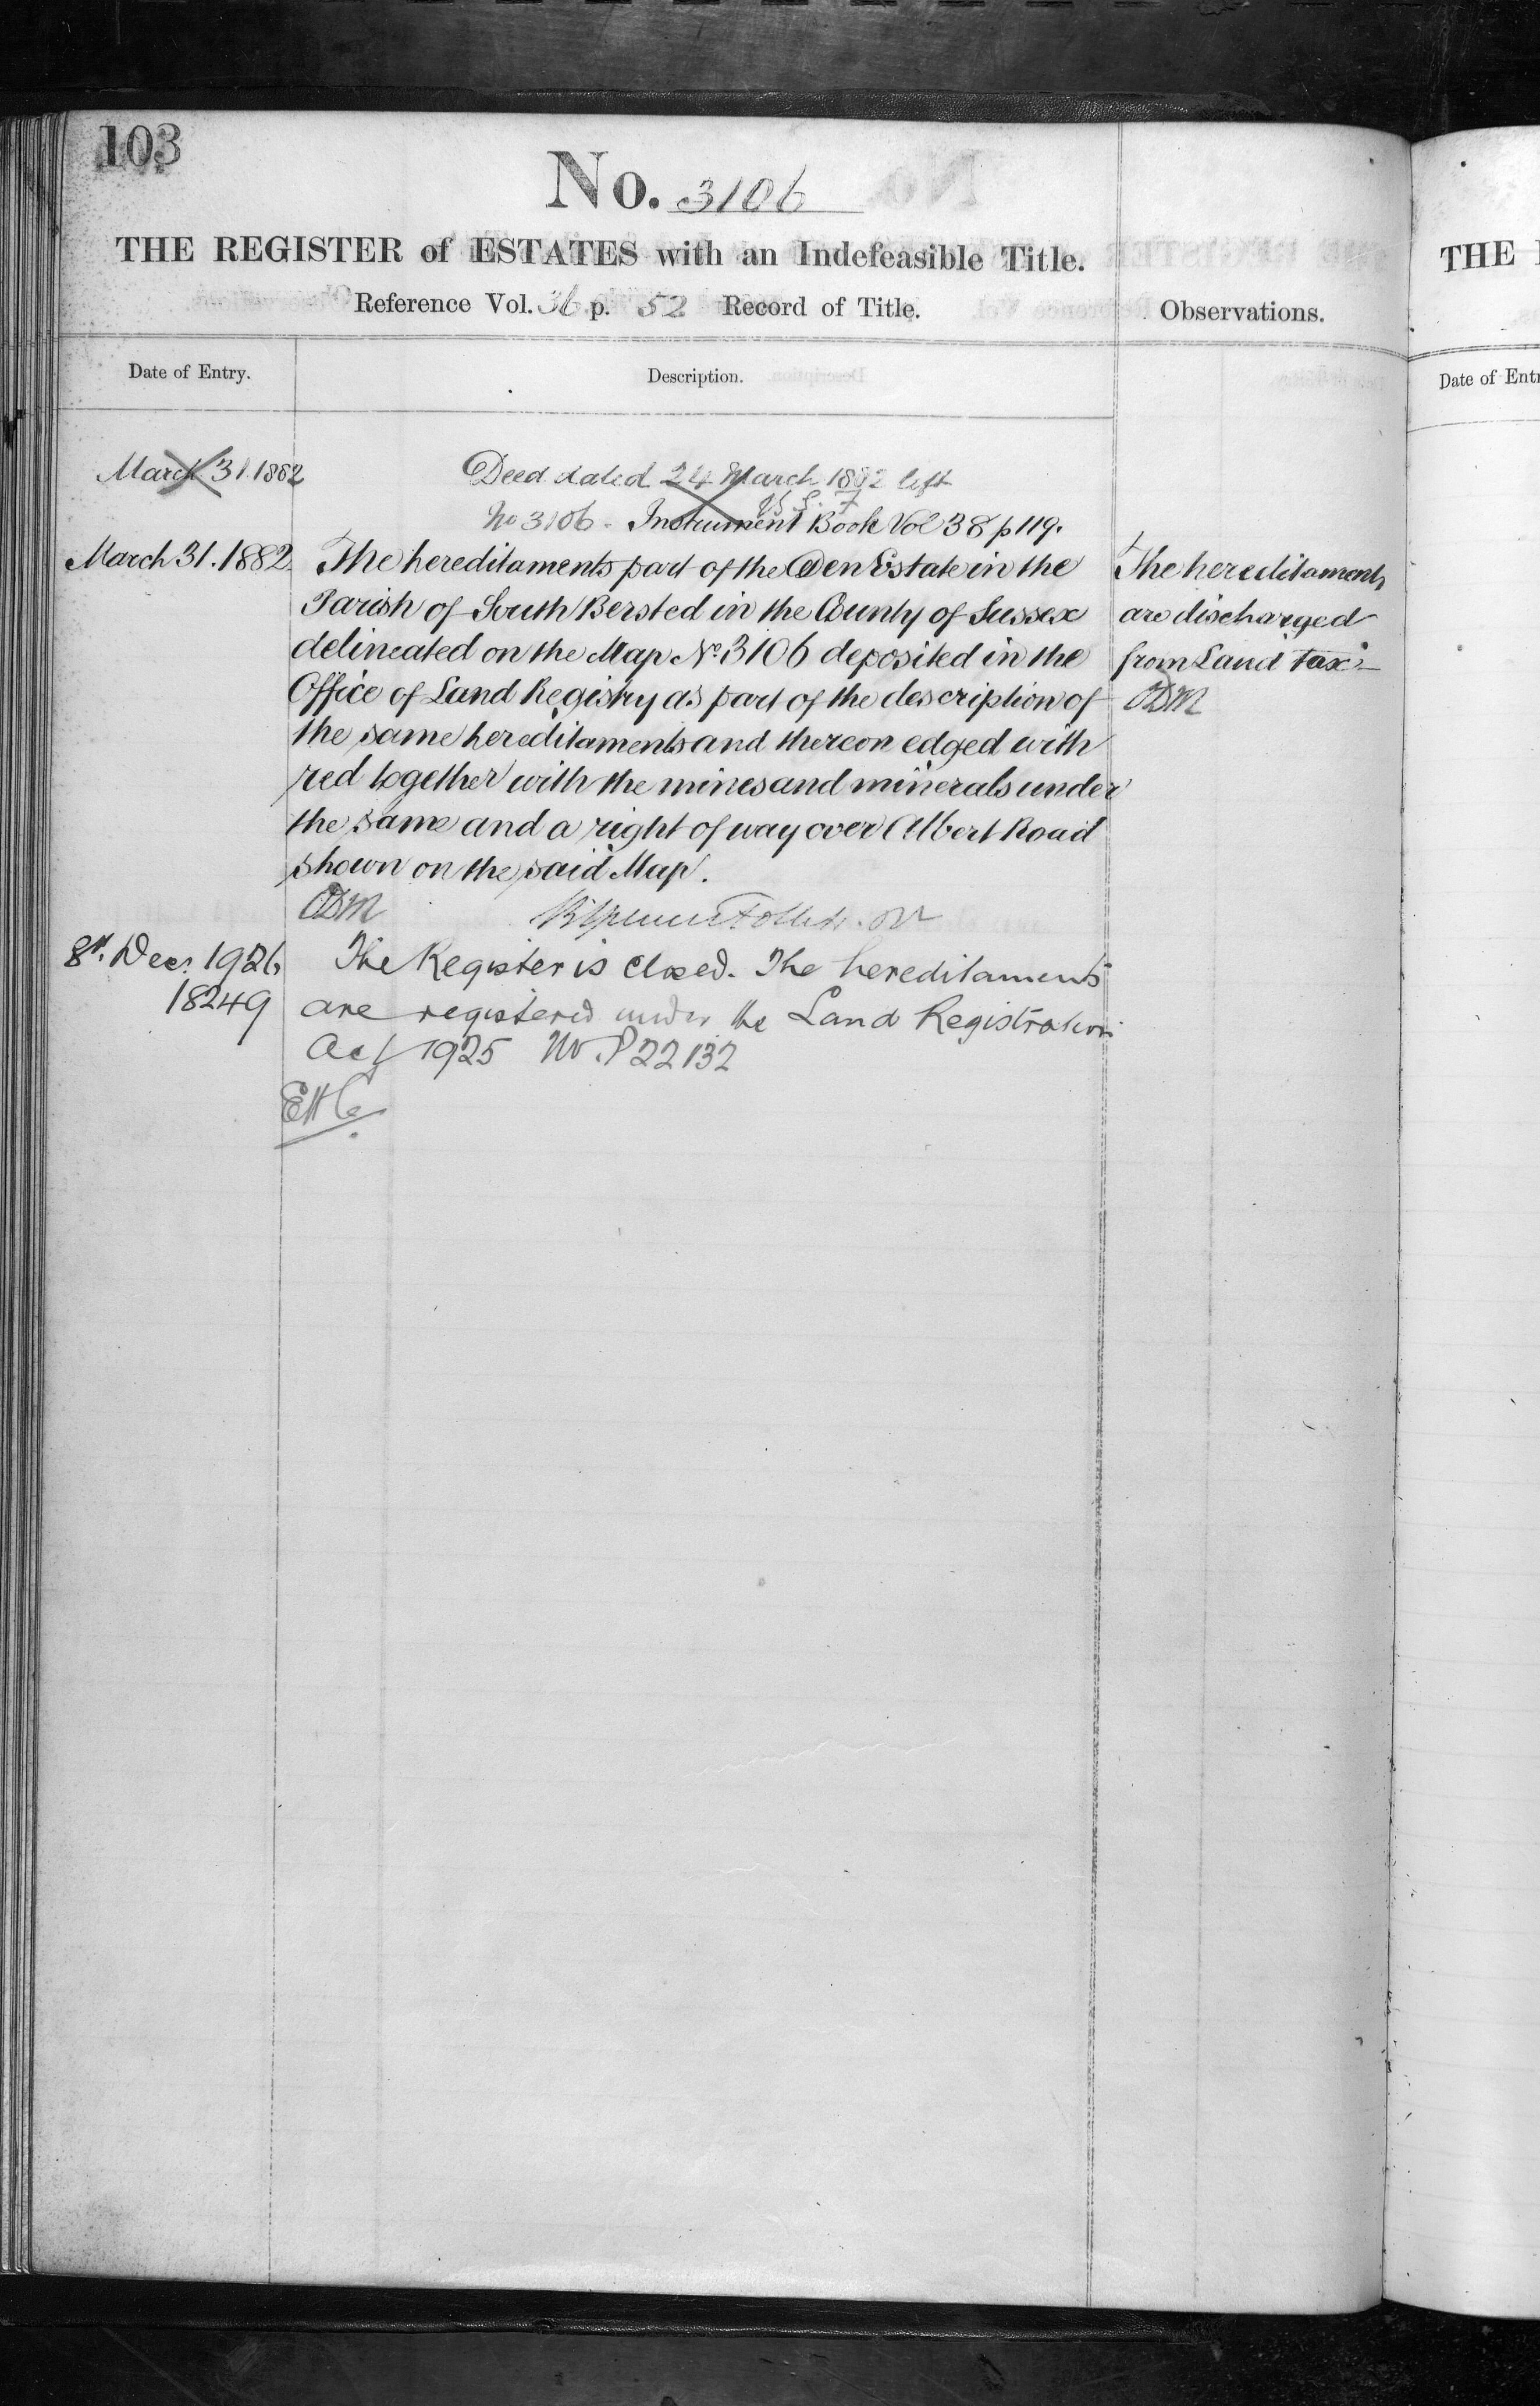 103
No. 3106
THE REGISTER of ESTATES with an Indefeasible Title.
Reference Vol. 36 p. 52 Record of Title.
Observations.
Date of Entry.
Description.
March 31. 1882
Deed dated 24 March 1882 left
No 3106. Instrument Book Vol 38 p 119.
March 31. 1882.
The hereditaments part of the Den Estate in the
Parish of South Bersted in the County of Sussex
delineated on the Map No. 3106 deposited in the
Office of Land Registry as part of the description of
the same hereditaments and thereon edged with
red together with the mines and minerals under
the same and a right of way over Albert Road
shown on the said Map.
The hereditaments
are discharged
from Land Tax
8th. Decr. 1926
18249
The Register is closed. The hereditaments
are registered under the Land Registration
Act 1925 No. P 22132
THE
Date of Ent